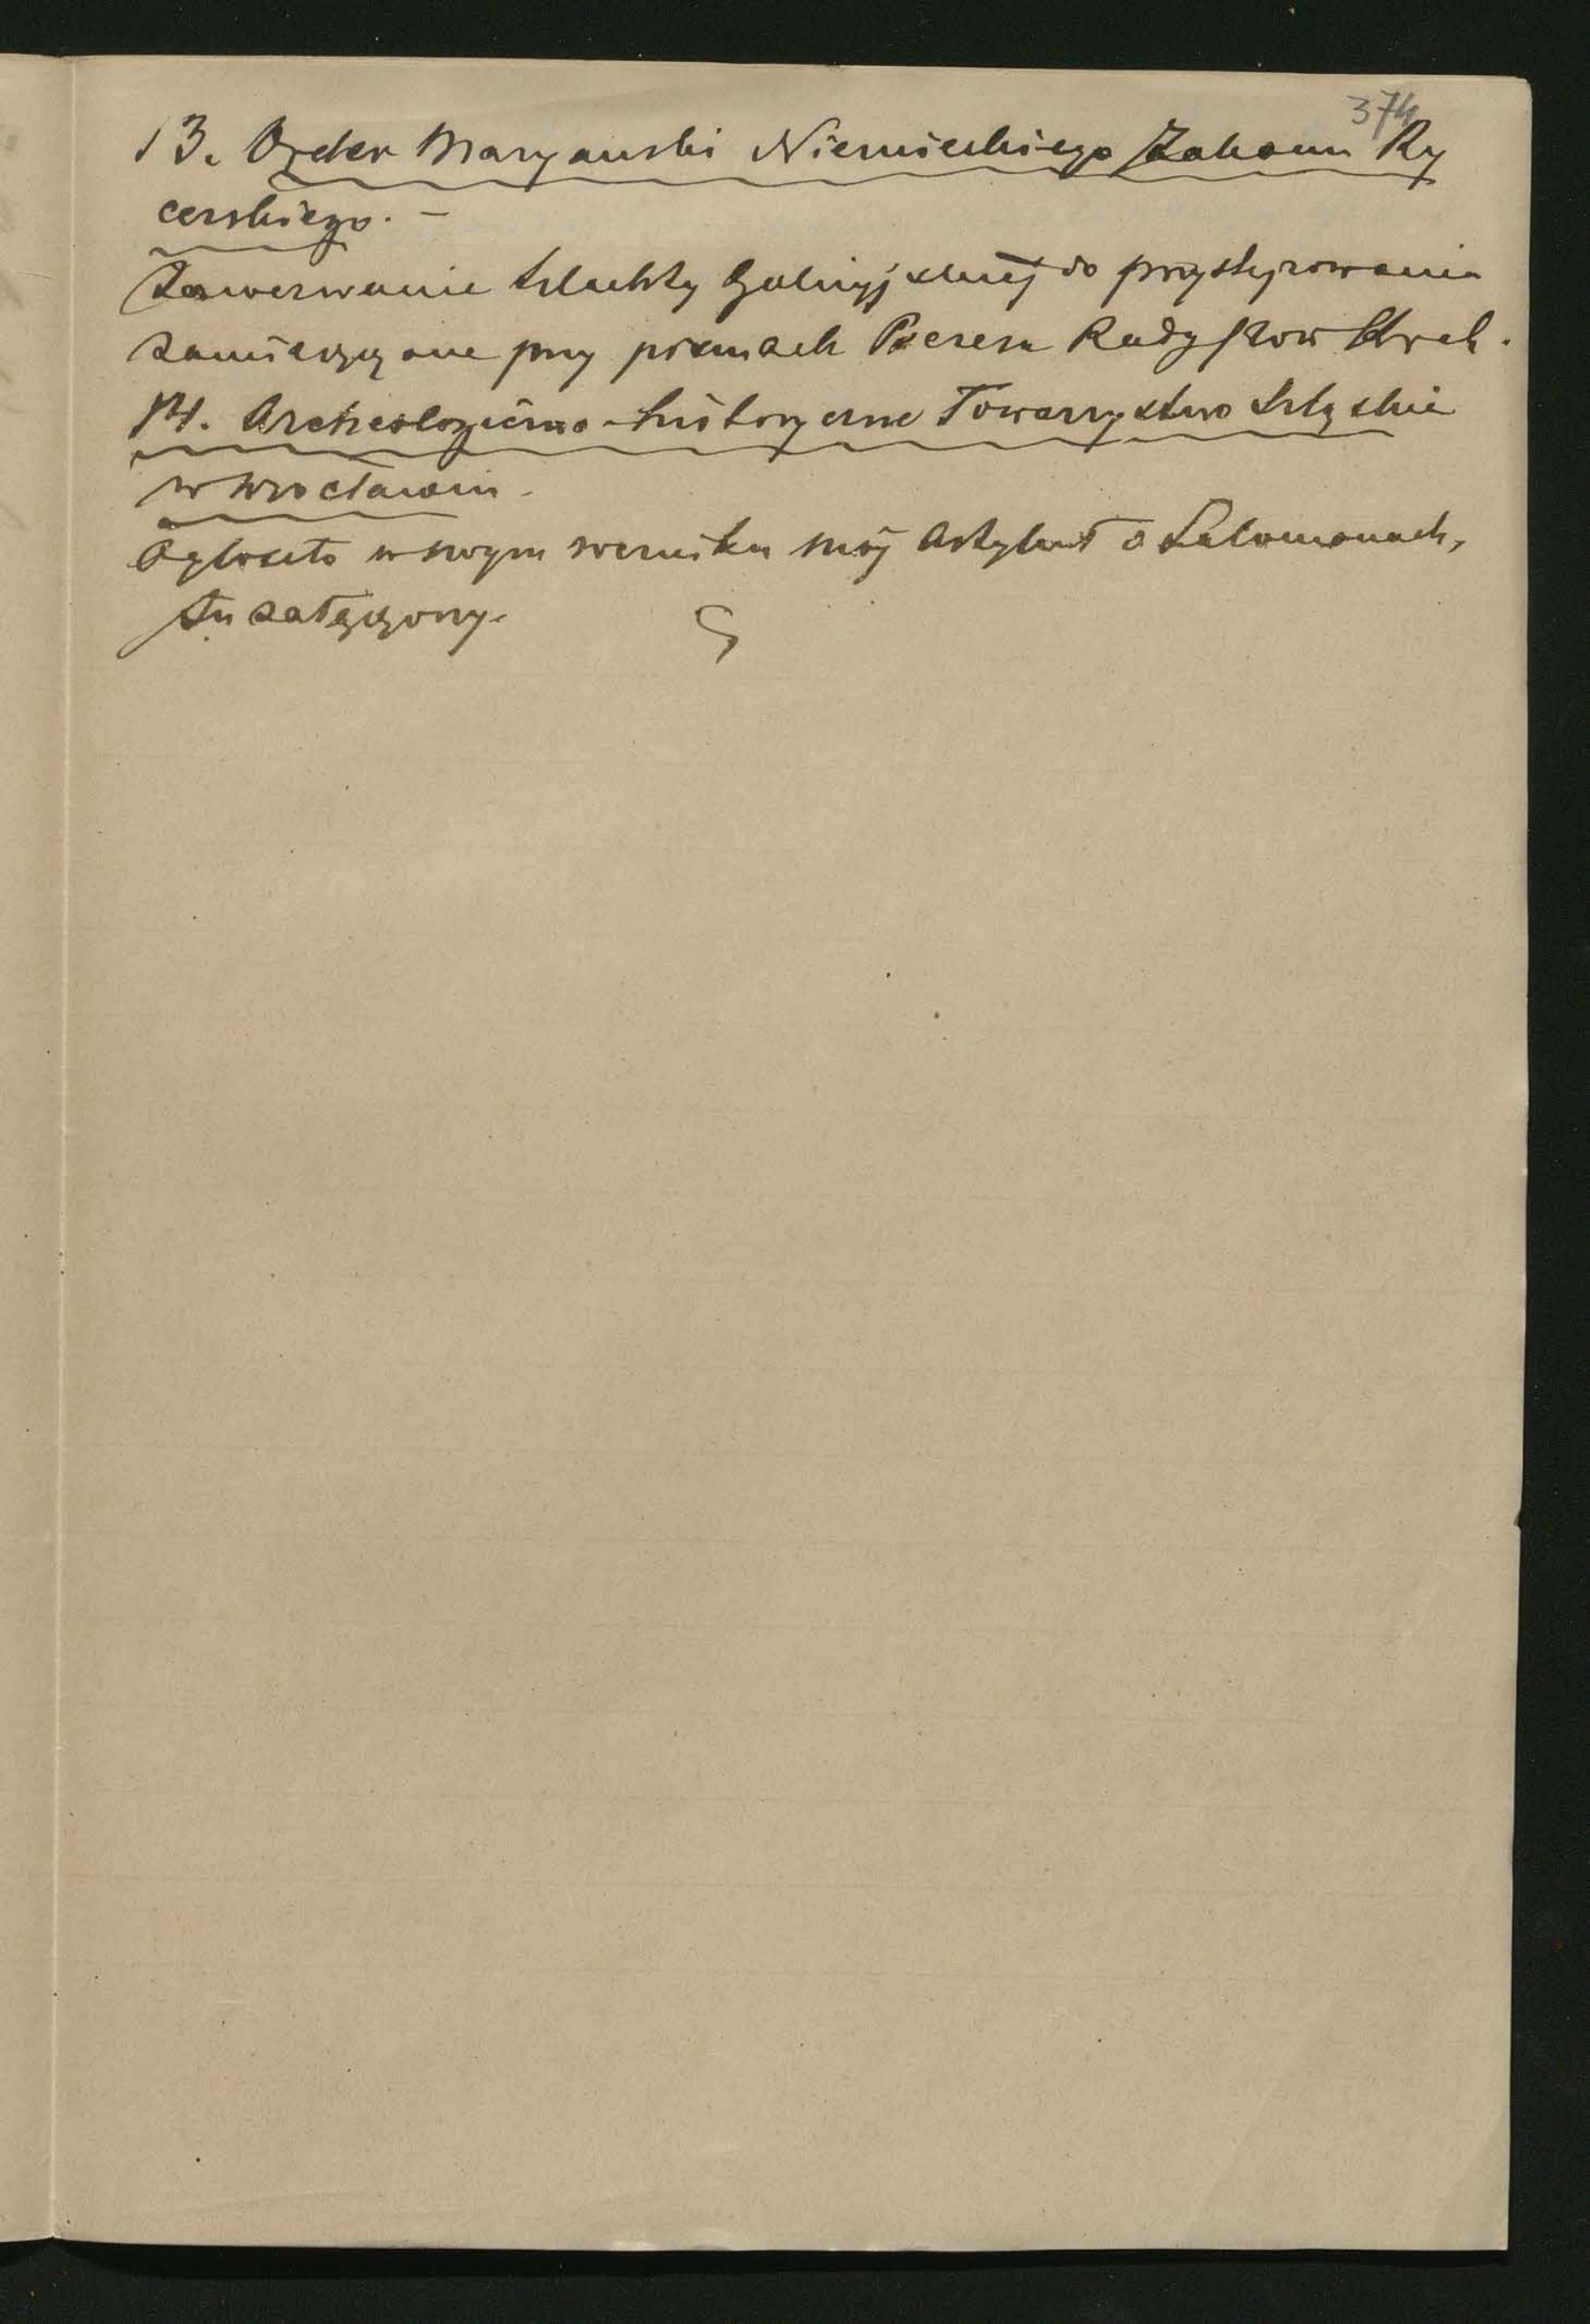 374
13. Order Maryański Niemieckiego Zakonu Ry
cerskiego. –
Zawezwanie szlachty Galicyjskiej do przystępowania
zamieszczone przy pismach Prezesa Rady Pow Krak.
14. Archeologiczno-historyczne Towarzystwo Szląskie
w Wrocławiu.
Ogłosiło w swym roczniku mój Artykuł o Salomonach,
tu załączony.